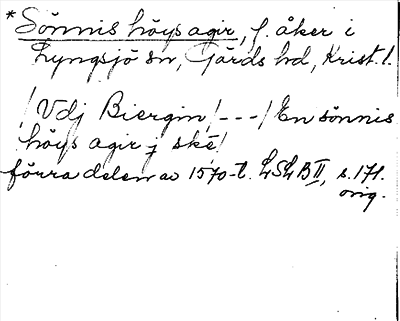 *Sönnis höys agir, f. åker i
Lyngsjö sn, Gärds hd, Krist. l.
/Vdj Biergin/---/En sönnis
höys agir j ske/
förra delen av 1570-t. LSLB II, s. 171.
orig.